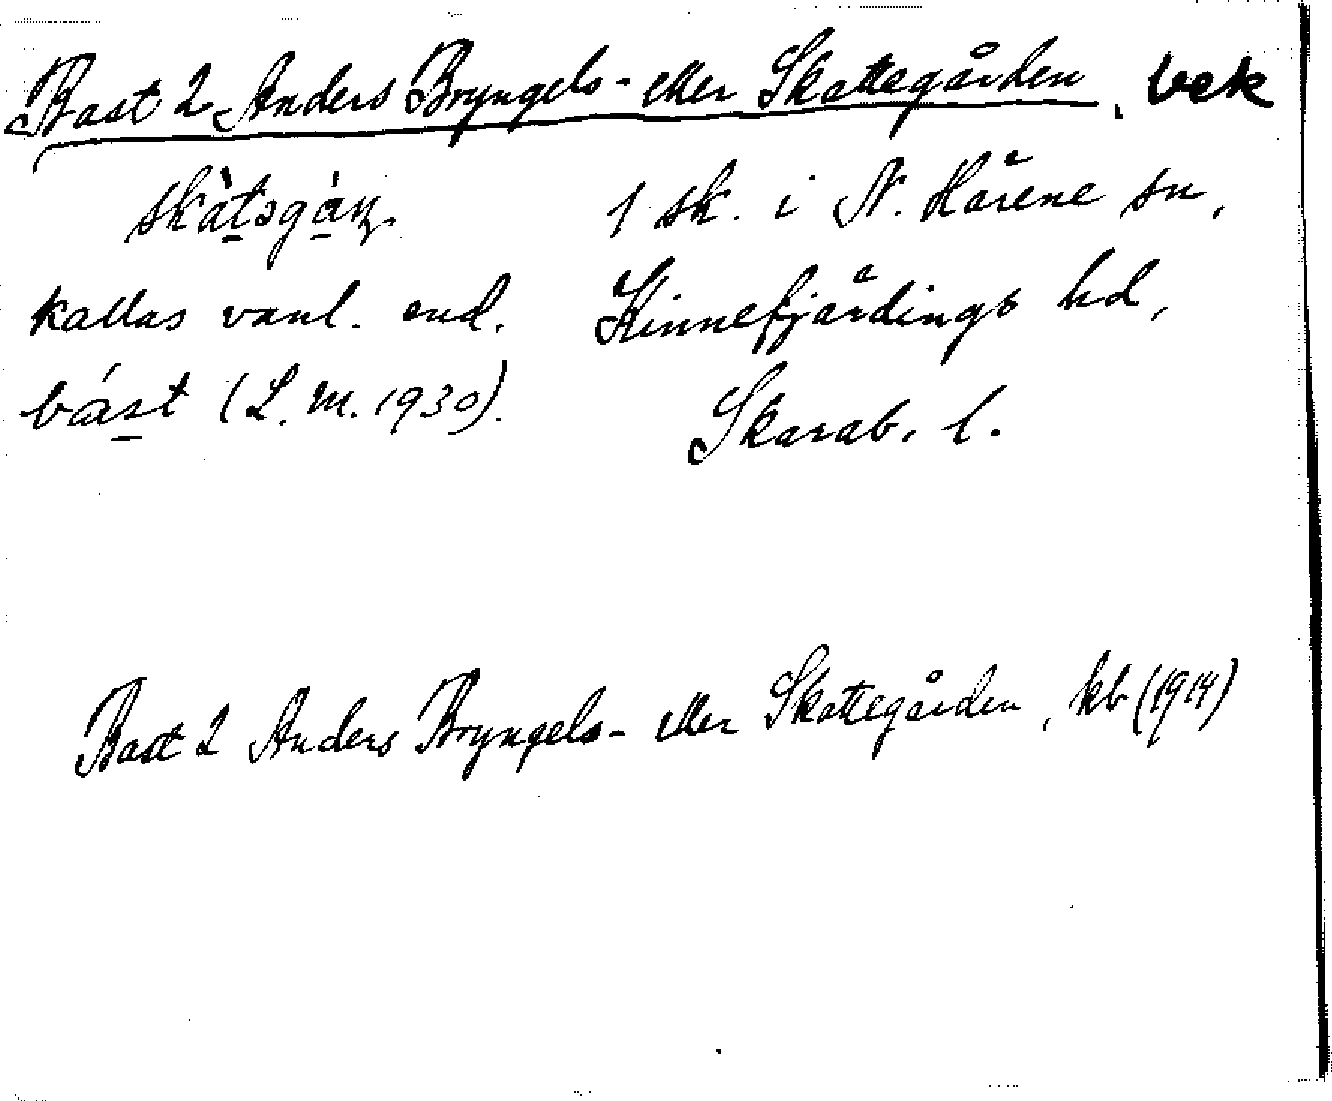 Bast 2 Anders Bryngels- eller Skattegården, bek
skàtəgáɳ. 1 sk. i N. Härene sn,
kallas vanl. end. Kinnefjärdings hd,
bást (L.M. 1930). Skarab. l.
Bast 2 Anders Bryngels- eller Skattegården, kb (1914)